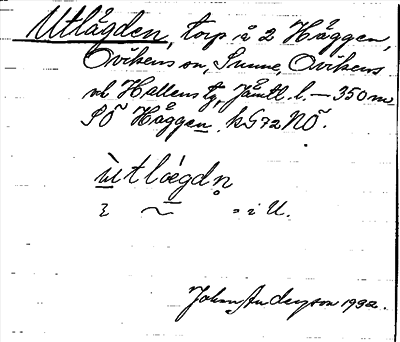 Utlågden, torp å 2 Häggen,
Ovikens sn, Sunne, Ovikens
o. Hallens tg, Jämtl. l. — 350 m
SÖ Häggen, kG72NÖ.
ùtlǻgdn̥
= i U.
Johan Anderson 1932.